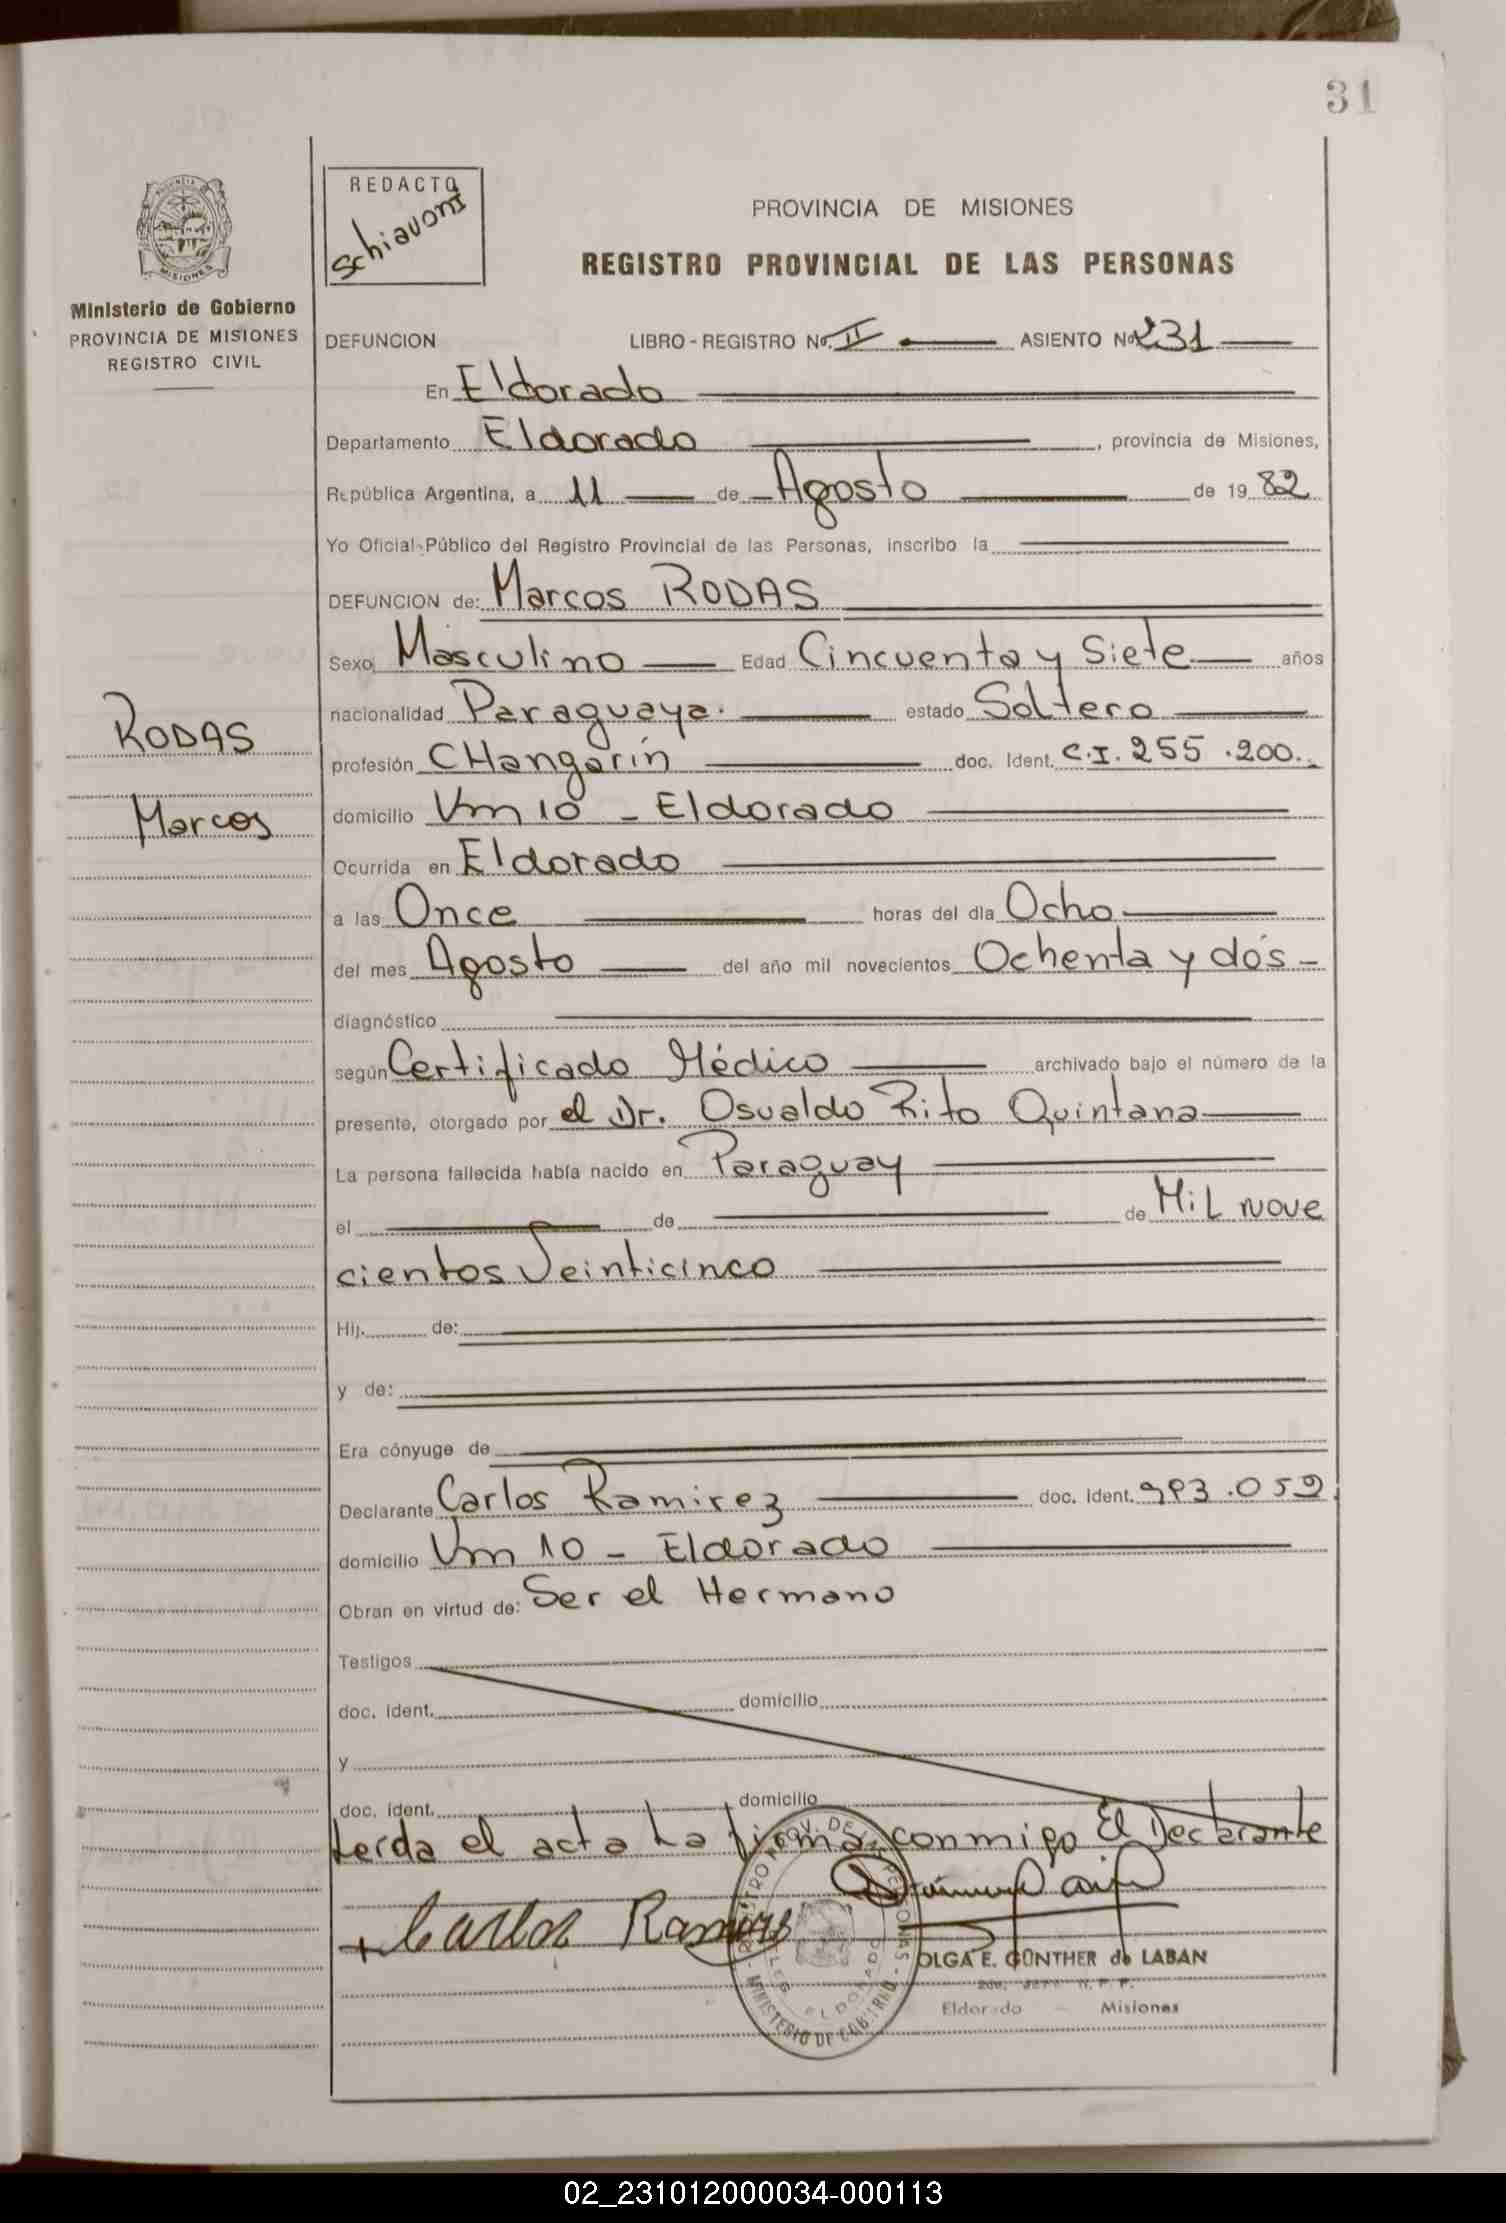 31
REDACTO
Schiavoni
PROVINCIA DE MISIONES
REGISTRO PROVINCIAL DE LAS PERSONAS
Ministerio de Gobierno
PROVINCIA DE MISIONES
REGISTRO CIVIL
DEFUNCION LIBRO - REGISTRO No. II ASIENTO No 231
En Eldorado
Departamento Eldorado, provincia de Misiones,
República Argentina, a 11 de Agosto de 19 82
Yo Oficial Público del Registro Provincial de las Personas, inscribo la
DEFUNCION de: Marcos RODAS
Sexo Masculino Edad Cincuenta y Siete años
nacionalidad Paraguaya. estado Soltero
RODAS
profesión CHangarín doc. Ident. C.I. 255.200.
Marcos
domicilio Km 10 - Eldorado
Ocurrida en Eldorado
a las Once horas del día Ocho
del mes Agosto del año mil novecientos Ochenta y dós -
diagnóstico
según Certificado Médico archivado bajo el número de la
presente, otorgado por el Dr. Osvaldo Rito Quintana
La persona fallecida había nacido en Paraguay
el de de Mil nove
cientos Veinticinco
Hij. de:
y de:
Era cónyuge de
Declarante Carlos Ramirez doc. ident. 993.059
domicilio Km 10 - Eldorado
Obran en virtud de: Ser el Hermano
Testigos
doc. ident. domicilio
y
doc. ident. domicilio
Leida el acta La firma conmigo El Declarante
Carlos Ramires
REGISTRO PROV. DE LAS PERSONAS
ELDORADO
MINISTERIO DE GOBIERNO
OLGA E. GÜNTHER de LABAN
Eldorado - Misiones
02_231012000034-000113